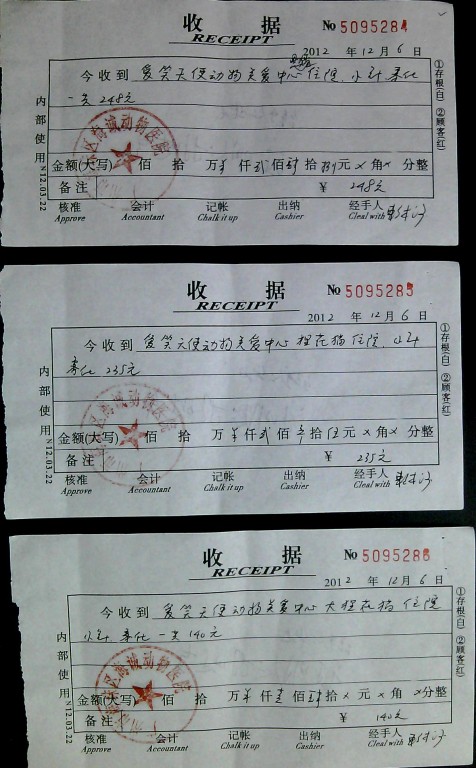 收 据 No 5095284
RECEIPT
2012 年 12 月 6 日
今收到 爱笑天使动物关爱中心 住院、小针 柔化
一共 248元
区海诚动物医院
金额(大写) 佰 拾 万¥ 仟 贰 佰 肆 拾 捌 元 × 角 × 分整
备注 ¥ 248元
核准 会计 记帐 出纳 经手人
Approve Accountant Chalk it up Cashier Cleal with
内部使用 N12.03.22
①存根(白) ②顾客(红)
收 据 No 5095285
RECEIPT
2012 年 12 月 6 日
今收到 爱笑天使动物关爱中心 狸花猫 住院、小针
235元
金额(大写) 佰 拾 万¥ 仟 贰 佰 叁 拾 伍 元 × 角 × 分整
备注 ¥ 235元
核准 会计 记帐 出纳 经手人
Approve Accountant Chalk it up Cashier Cleal with
内部使用 N12.03.22
①存根(白) ②顾客(红)
收 据 No 5095286
RECEIPT
2012 年 12 月 6 日
今收到 爱笑天使动物关爱中心 大狸花猫 住院
小针 一共 140元
区海诚动物医院
金额(大写) 佰 拾 万¥ 仟 壹 佰 肆 拾 × 元 × 角 × 分整
备注 ¥ 140元
核准 会计 记帐 出纳 经手人
Approve Accountant Chalk it up Cashier Cleal with
内部使用 N12.03.22
①存根(白) ②顾客(红)